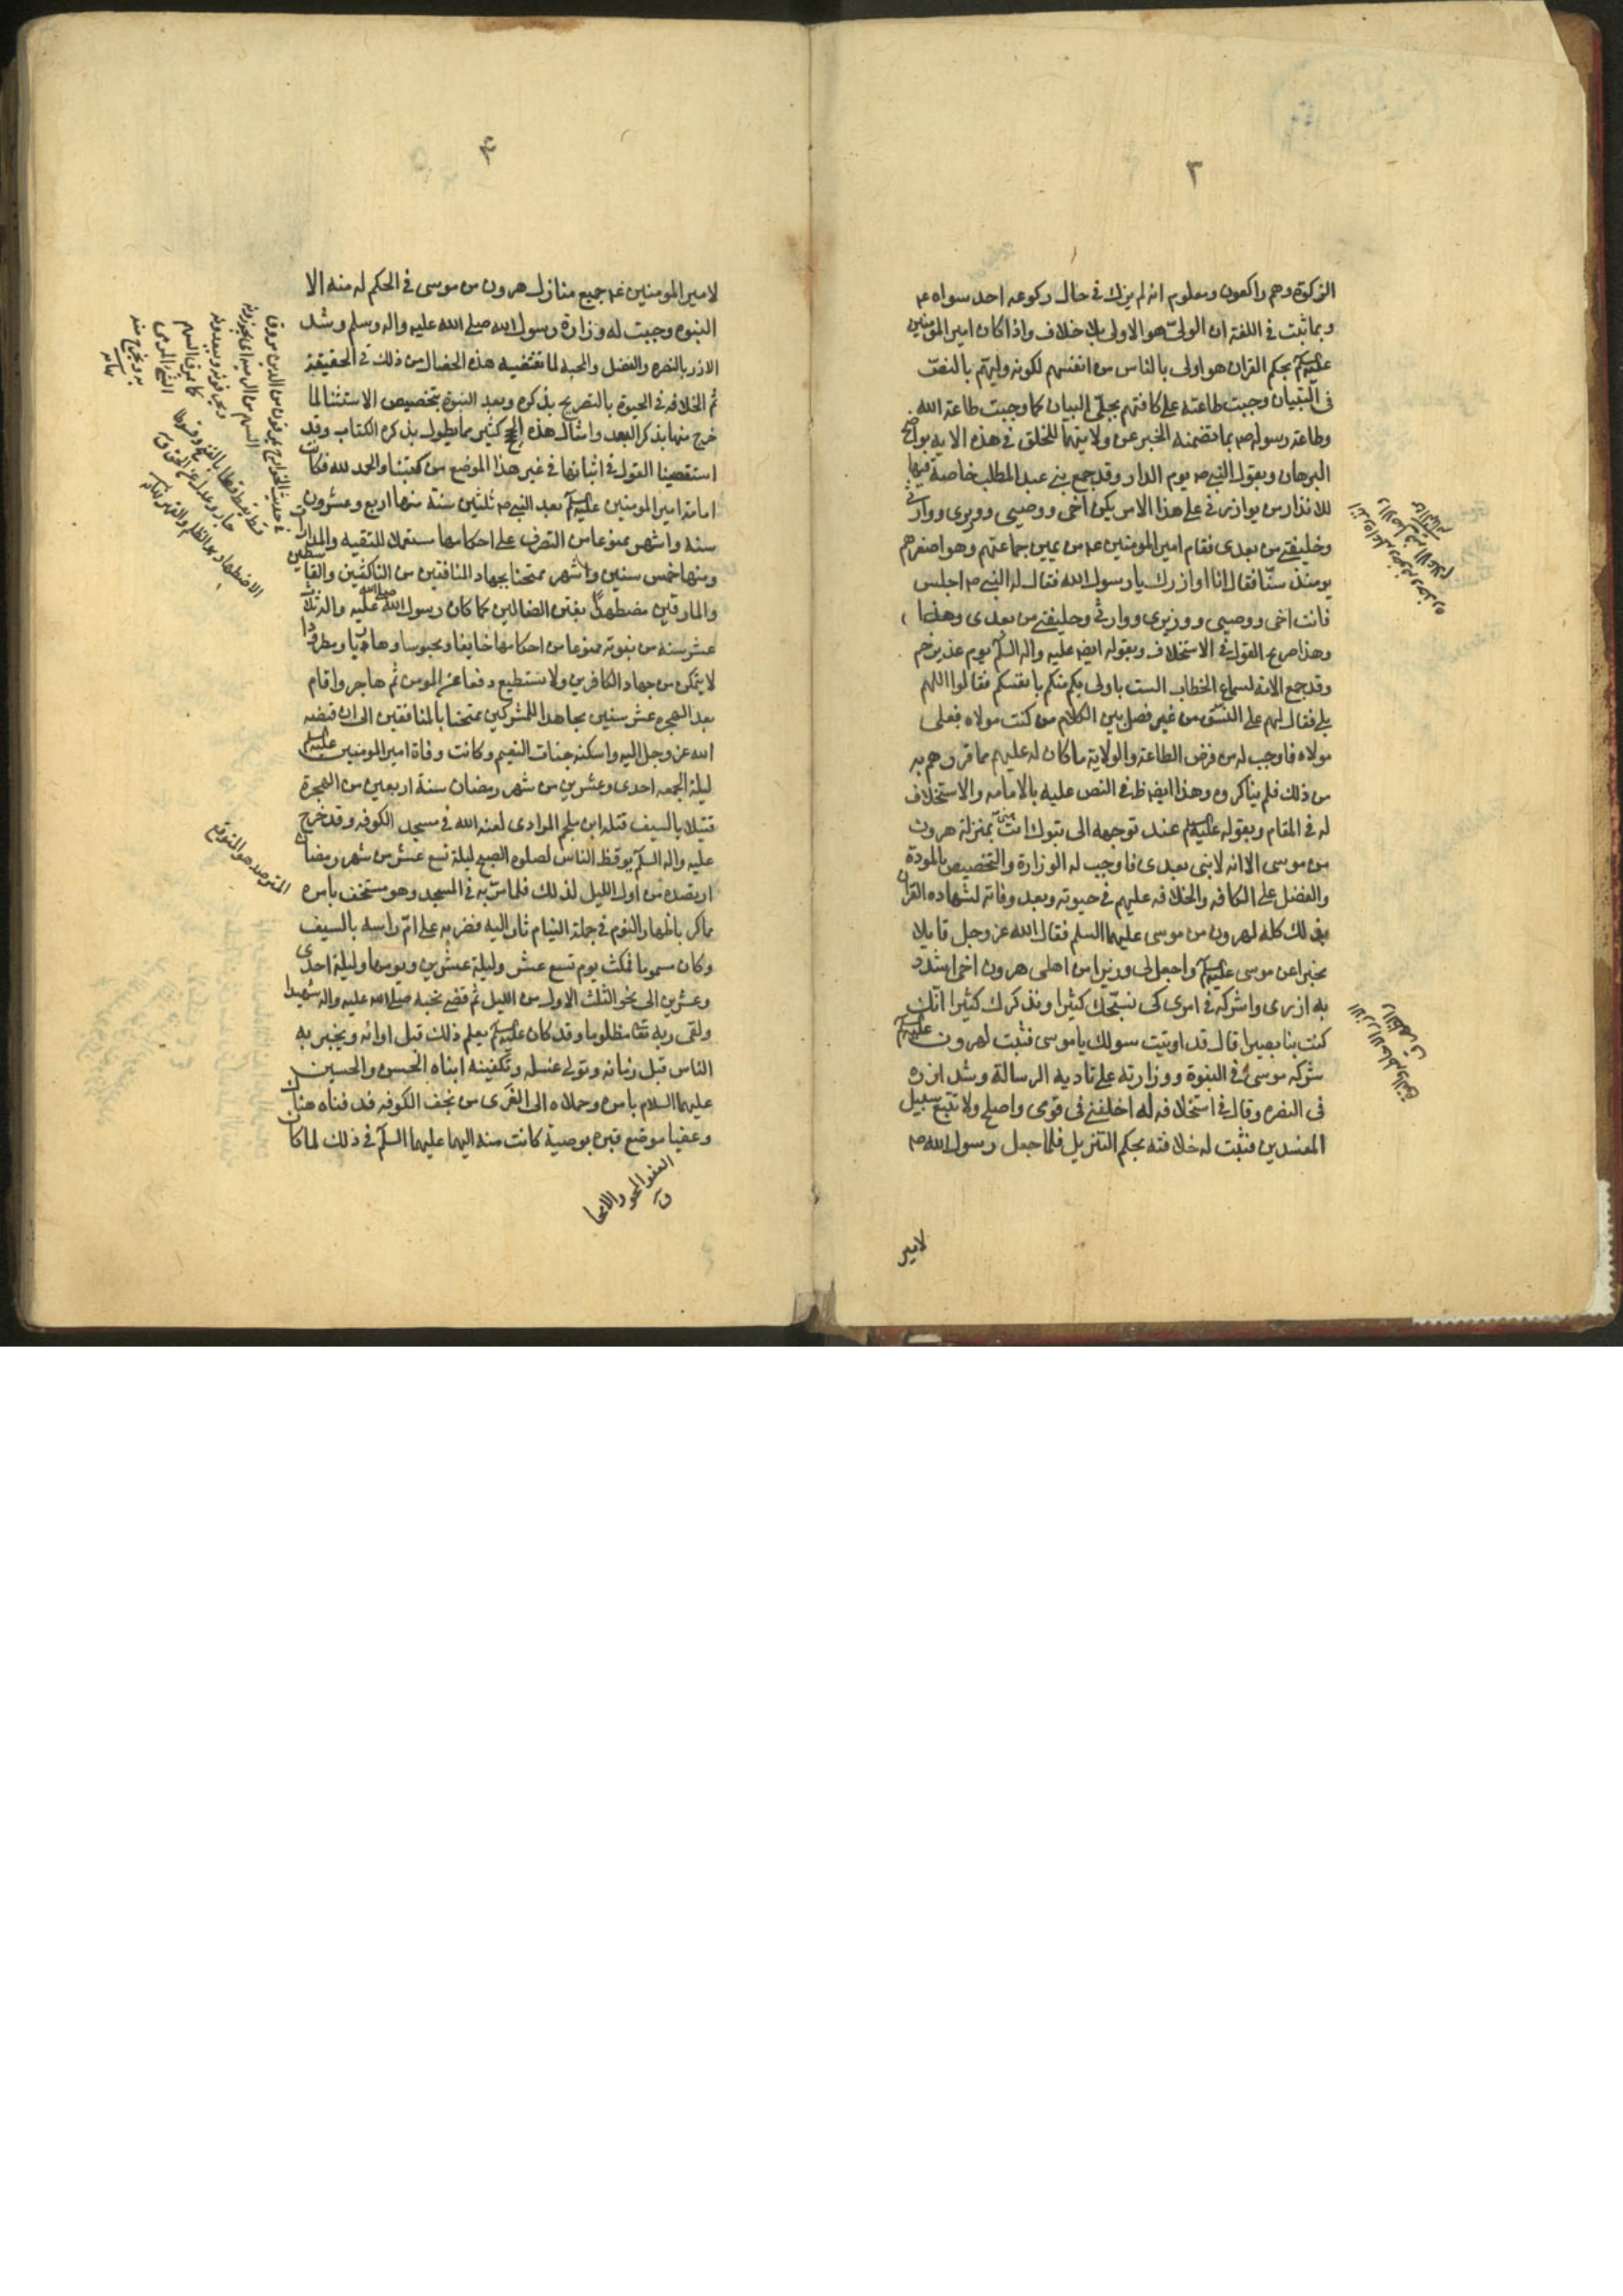 ٣
الزكوة وهم راكعون ومعلوم انه لم يزك في حال ركوعه احد سواه عم
وبما ثبت في اللغة ان الولي هو الاولى بلا خلاف واذا كان امير المؤمنين
عليه السلم بحكم القران هو اولى بالناس من انفسهم لكونه وليهم بالنص
في التبيان وجبت طاعته على كافتهم بجلي البيان كما وجبت طاعة الله
وطاعة رسوله ص بما تضمنه الخبر عن ولايتهما للخلق في هذه الاية بواضح
البرهان وبقول النبي ص يوم الدار وقد جمع بني عبد المطلب خاصة فيها
للانذار من يوازرني على هذا الامر يكن اخي ووصيي ووزيري ووارثي
وخليفتي من بعدي فقام امير المومنين عم من بين جماعتهم وهو اصغرهم
يومئذ سنا فقال انا اوازرك يا رسول الله فقال له النبي ص اجلس
فانت اخي ووصيي ووزيري ووارثي وخليفتي من بعدي وهذا
وهذا صريح القول في الاستخلاف وبقوله ايضا عليه واله السلم يوم غدير خم
وقد جمع الامة لسماع الخطاب الست باولى بكم منكم بانفسكم فقالوا اللهم
بلى فقال لهم على النسق من غير فصل بين الكلام من كنت مولاه فعلي
مولاه فاوجب له من فرض الطاعة والولاية ما كان له عليهم مما قررهم به
من ذلك فلم يتناكروه وهذا ايضا ظ في النص عليه بالامامة والاستخلاف
له في المقام وبقوله عليه السلم عند توجهه الى تبوك انت مني بمنزلة هرون
من موسى الا انه لا نبي بعدي فاوجب له الوزارة والتخصيص بالمودة
والفضل على الكافه والخلافه عليهم في حيوته وبعد وفاته لشهاده القران
بذلك كله لهرون من موسى عليهما السلم فقال الله عز وجل قايلا
مخبرا عن موسى عليه السلم واجعل لي وزيرا من اهلي هرون اخي اشدد
به ازري واشركه في امري كي نسبحك كثيرا ونذكرك كثيرا انك
كنت بنا بصيرا قال قد اوتيت سولك يا موسى فثبت لهرون عليه السلم
شركه موسى في النبوة ووزارته على تادية الرسالة وشد ازره
في النصره وقال في استخلافه له اخلفني في قومي واصلح ولا تتبع سبيل
المفسدين فثبت له خلافته بحكم التنزيل فلما جعل رسول الله ص
لامير
٤
لامير المومنين عم جميع منازل هرون من موسى في الحكم له منه الا
النبوه وجبت له وزارة رسول الله صلى الله عليه واله وسلم وشد
الازر بالنصره والفضل والمحبه لما تقتضيه هذه الخصال من ذلك في الحقيقة
ثم الخلافه في الحيوة بالتصريح بذكره وبعد النبوة بتخصيص الاستثنا لما
خرج منها بذكر البعد وامثال هذه الحجج كثير مما يطول بذكره الكتاب وقد
استقصينا القول في اثباتها في غير هذا الموضع من كتبنا والحمد لله فكانت
امامة امير المومنين عليه السلم بعد النبي ص ثلثين سنة منها اربع وعشرون
سنه واشهر ممنوعا من التصرف على احكامها مستعملا للتقيه والمدارات
ومنها خمس سنين واشهر ممتحنا بجهاد المنافقين من الناكثين والقاسطين
والمارقين مضطهدا بفتن الضالين كما كان رسول الله صلى الله عليه واله ثلاث
عشر سنه من نبوته ممنوعا من احكامها خايفا ومحبوسا وهاربا ومطرودا
لا يتمكن من جهاد الكافرين ولا يستطيع دفعا عن المومن ثم هاجر واقام
بعد الهجره عشر سنين مجاهدا للمشركين ممتحنا بالمنافقين الى ان قبضه
الله عز وجل اليه واسكنه جنات النعيم وكانت وفاة امير المومنين عليه السلم
ليلة الجمعه احدى وعشرين من شهر رمضان سنة اربعين من الهجرة
قتيلا بالسيف قتله ابن ملجم المرادى لعنه الله في مسجد الكوفه وقد خرج
عليه واله السلم يوقظ الناس لصلوه الصبح ليلة تسع عشر من شهر رمضان
ارتصده من اول الليل لذلك فلما مر به في المسجد وهو مستخف بامره
مماكر باظهار النوم في جملة النيام ثار اليه فضربه على ام راسه بالسيف
وكان مسموما فمكث يوم تسع عشر وليلة عشرين ويومها وليلة احدى
وعشرين الى نحو الثلث الاول من الليل ثم قضى نحبه صلى الله عليه واله شهيدا
ولقى ربه تعا مظلوما وقد كان عليه السلم يعلم ذلك قبل اوانه ويخبر به
الناس قبل زمانه وتولى غسله وتكفينه ابناه الحسن والحسين
عليهما السلام بامره وحملاه الى الغرى من نجف الكوفه فدفناه هناك
وعفيا موضع قبره بوصية كانت منه اليهما عليهما السلم في ذلك لما كان
العفو المحو والامحا
ق
المترصد هو المترقب